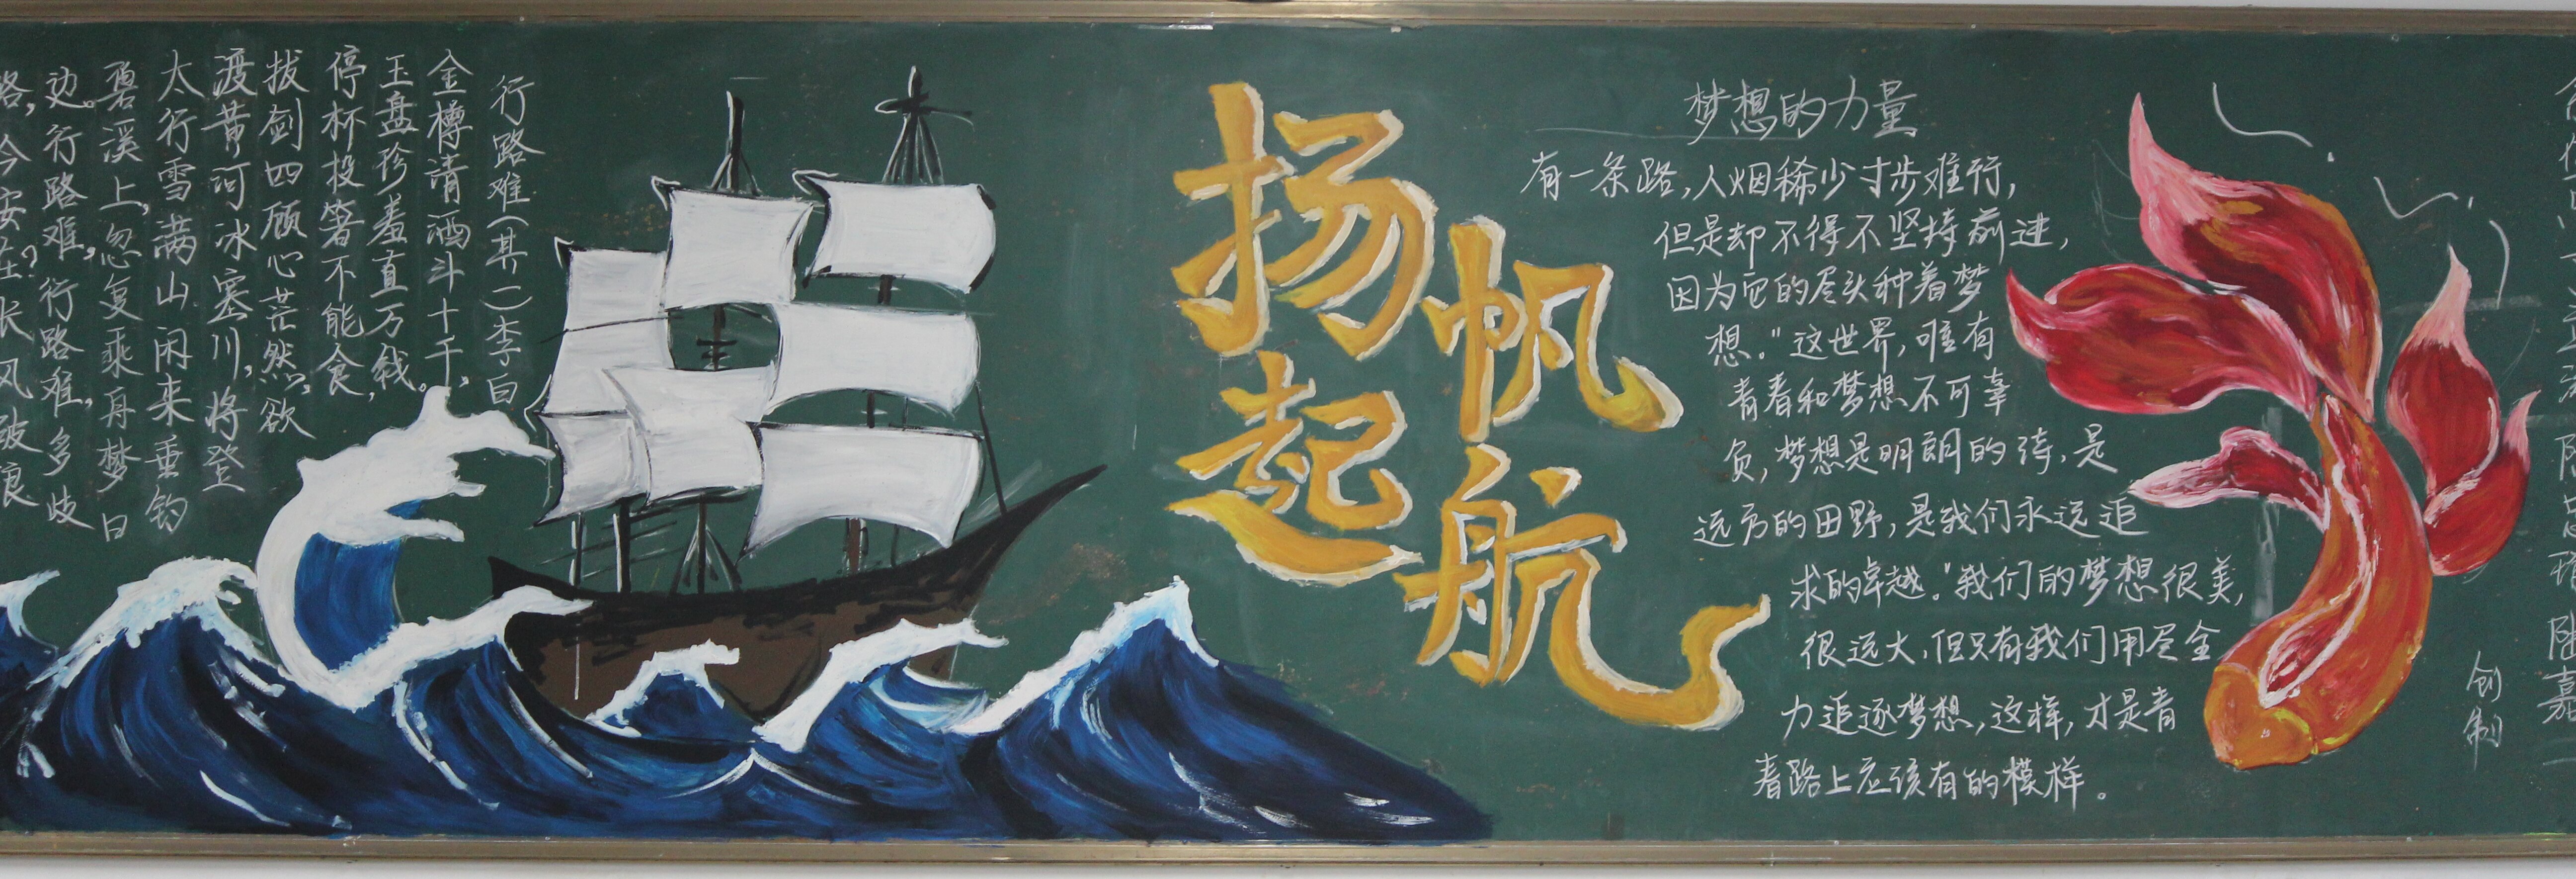 行路难(其一)李白
金樽清酒斗十千,
玉盘珍羞直万钱。
停杯投箸不能食,
拔剑四顾心茫然。欲
渡黄河冰塞川,将登
太行雪满山。闲来垂钓
碧溪上,忽复乘舟梦日
边。行路难,行路难,多歧
路,今安在?长风破浪
扬帆
起航
梦想的力量
有一条路,人烟稀少寸步难行,
但是却不得不坚持前进,
因为它的尽头种着梦
想。"这世界,唯有
青春和梦想不可辜
负,梦想是明朗的诗,是
远方的田野,是我们永远追
求的卓越。"我们的梦想很美,
很远大,但只有我们用尽全
力追逐梦想,这样,才是青
春路上应该有的模样。
创制